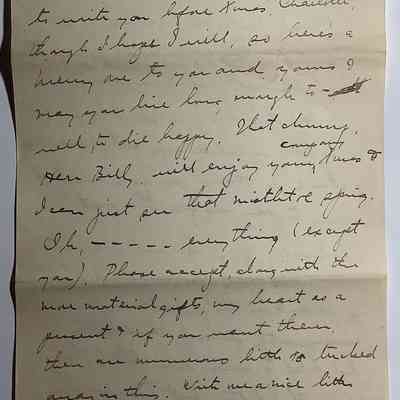 to write you before Xmas, Charlotte,
though I hope I will, so here's a
merry one to you and yours &
may you live long enough to -
well, to die happy. That chummy,
company
Herr Billy, will enjoy your Xmas &
I can just see that mistletoe sprig.
Oh, ----- everything (except
you). Please accept, along with the
more material gifts, my heart as a
present & if you want them,
there are numerous little tucked
away in this. Write me a nice little